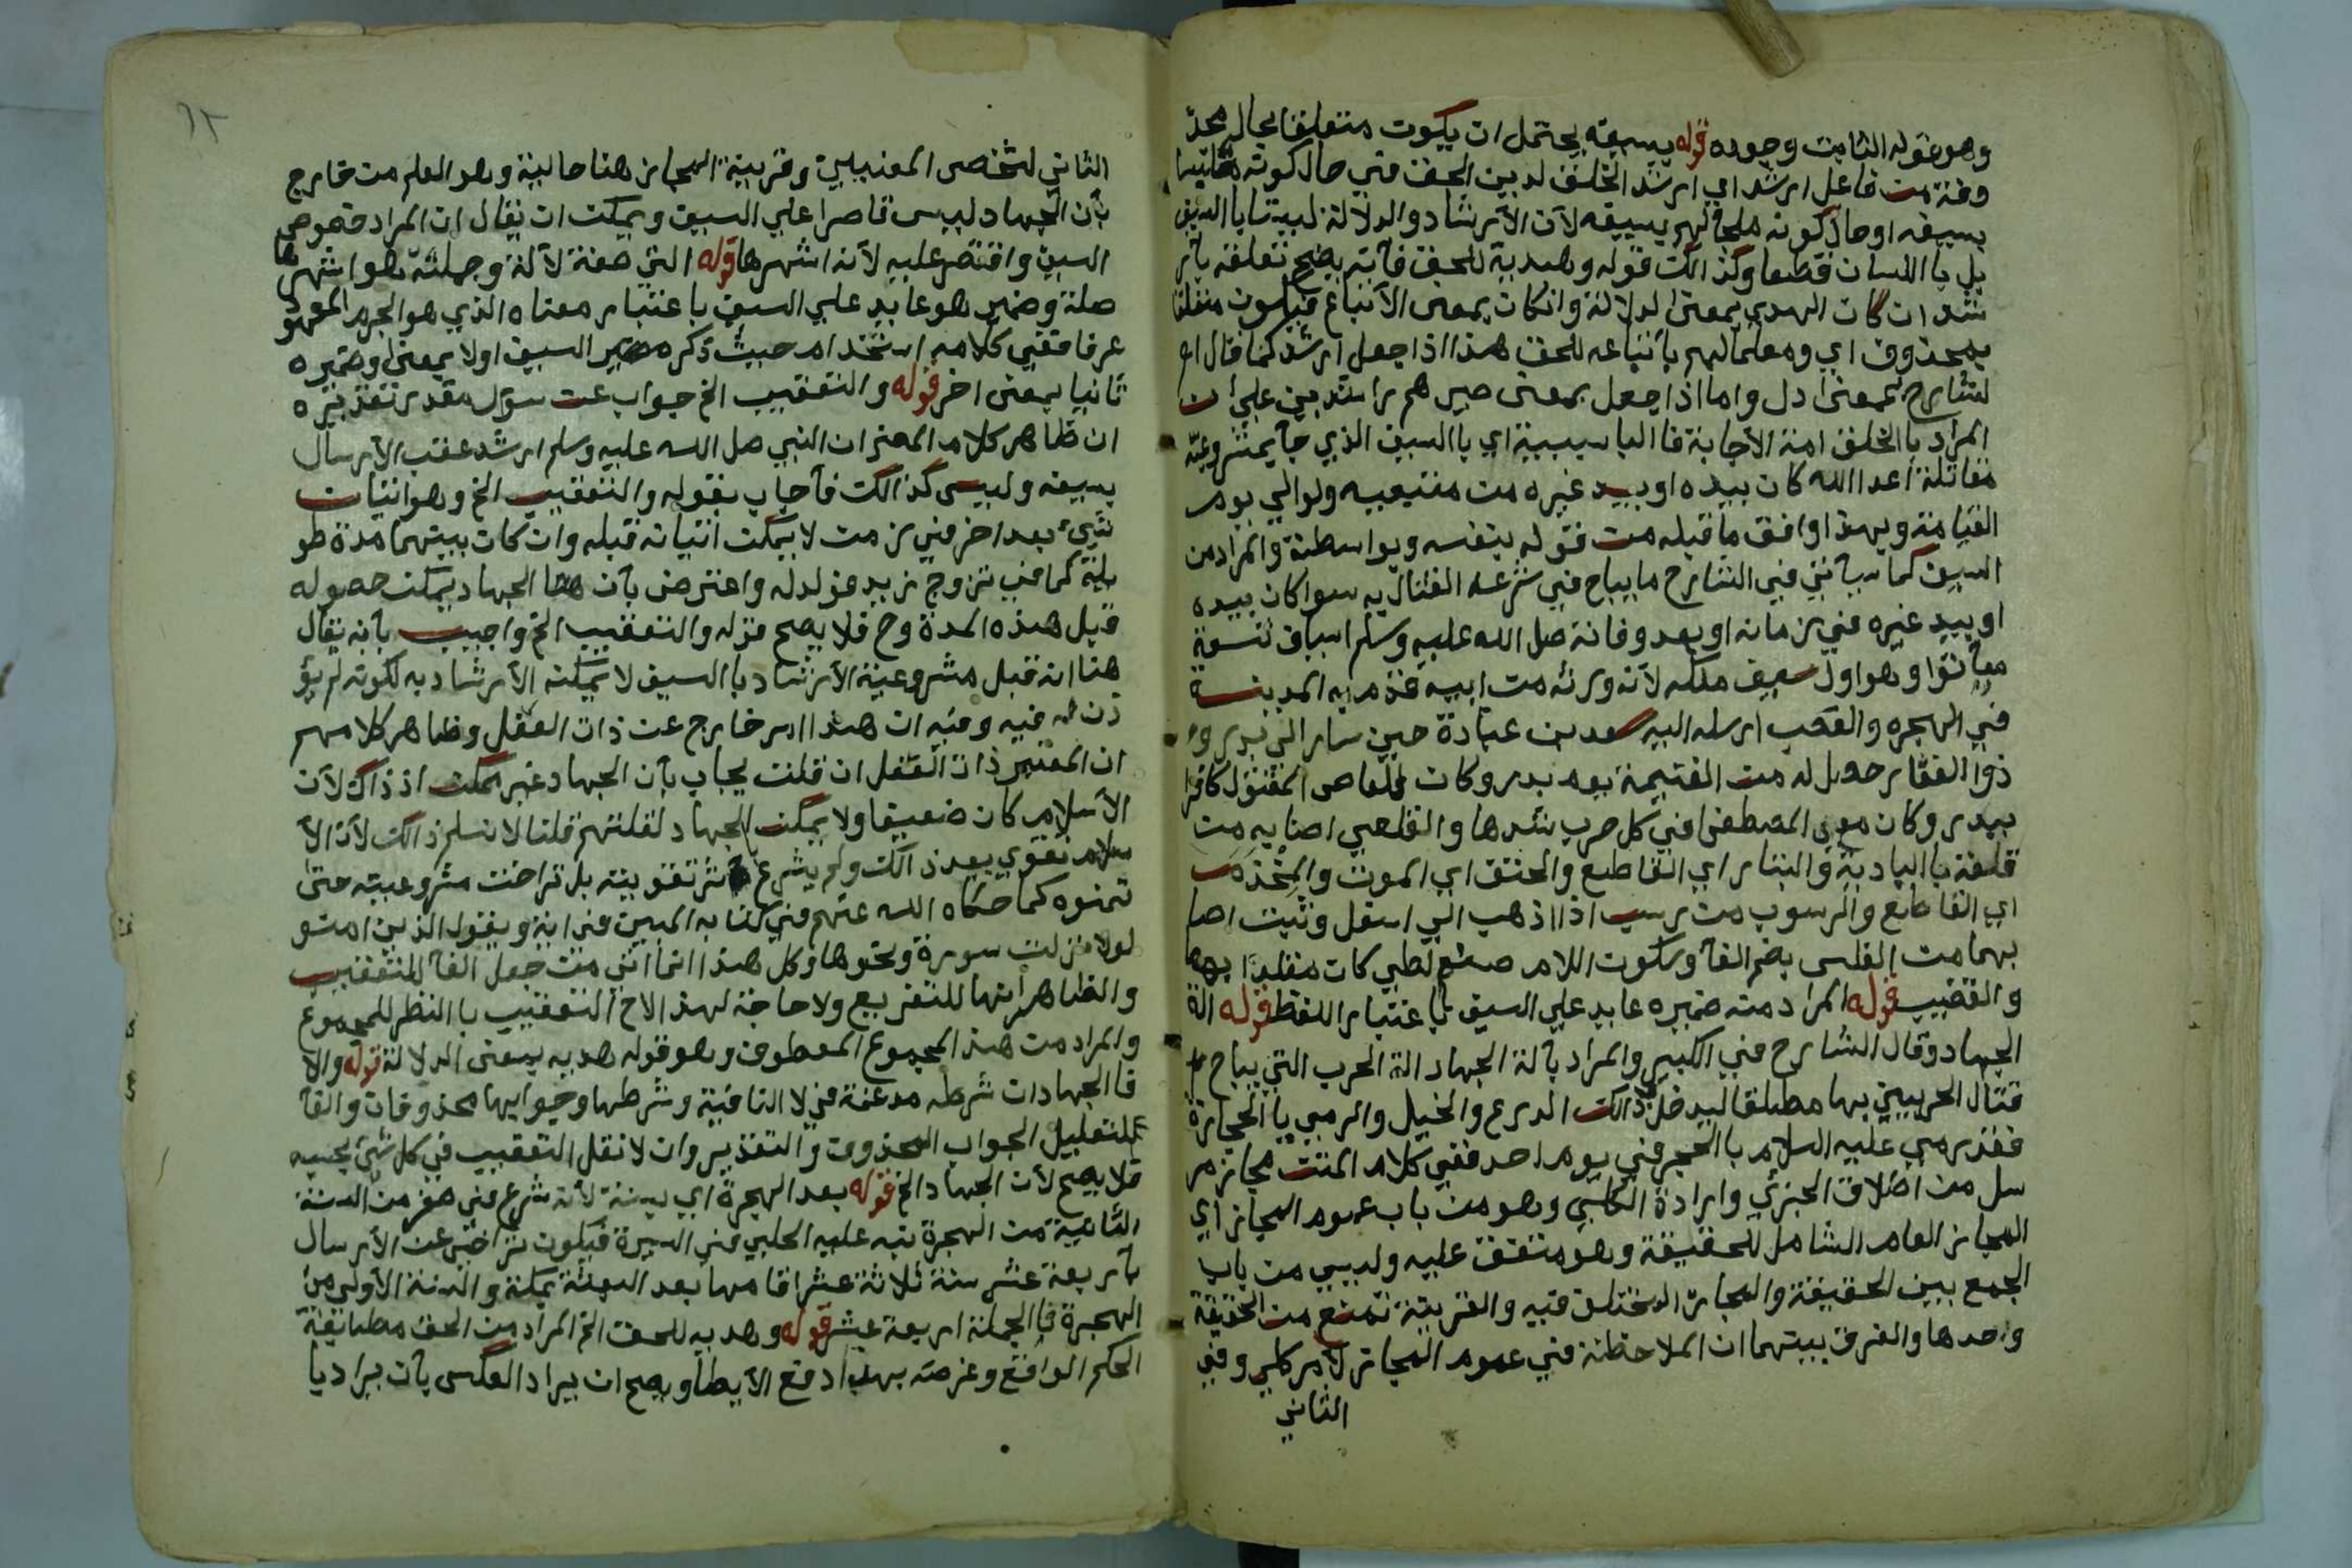 وهو قوله الثابت وجوده قوله بسيفه يحتمل ان يكون متعلقا بحال محذ
وفة من فاعل ارشد اي ارشد الخلق لدين الحق في حال كونه مقاتلا
بسيفه او حال كونه ملجأ لهم بسيفه لأن الأرشاد والدلالة ليستا باالسيف
بل باللسان قطعا وكذالك قوله وهديه للحق فأنه يصح تعلقه بأر
شد ان كان الهدي بمعنى الدلالة وانكان بمعنى الأتباع فيكون متعلقا
بمحذوف اي ومعلما لهم بأتباعه للحق هذا اذا جعل ارشد كما قال
الشارح بمعنى دل واما اذا جعل بمعنى صيرهم راشدين على ان
المراد باالخلق امة الأجابة فاالبا سببية اي باالسيف الذي جأ بمشروعية
مقاتلة اعدا الله كان بيده او بيد غيره من متبعيه ولوالي يوم
القيامة وبهذا وافق ما قبله من قوله بنفسه وبواسطة والمراد من
السيف كما سيأتي في الشارح ما يباح في شرعه القتال به سوا كان بيده
او بيد غيره في زمانه او بعد وفاته صل الله عليه وسلم اسياف تسعة
مأثورا وهو اول سيف ملكه لأنه ورثه من ابيه فقدم به المدينة
في الهجره والعضب ارسله اليه سعد بن عبادة حين سار الي بدر و
ذوا الفقار حصل له من الغنيمة يوم بدر وكان للعاص المقتول كافرا
ببدر وكان مع المصطفى في كل حرب شهدها والقلعي اصابه من
قلعة باالبادية والبتار اي القاطع والحتف اي الموت والمخذم
اي القاطع والرسوب من رسب اذا ذهب الي اسفل وثبت اصا
بهما من الفلس بضم الفأ وسكون اللام صنم لطي كان مقلدا بهما
والقضيب قوله المراد منه ضميره عايد علي السيف بأعتبار اللفظ قوله الة
الجهاد وقال الشارح في الكبير والمراد بآلة الجهاد الة الحرب التي يباح
قتال الحربيين بها مطلقا ليدخل ذالك الدرع والخيل والرمي باالحجارة
فقد رمي عليه السلام باالحجر في يوم احد ففي كلام المتن مجاز مر
سل من اطلاق الجزئي وارادة الكلي وهو من باب عموم المجاز اي
المجاز العام الشامل للحقيقة وهو متفق عليه وليس من باب
الجمع بين الحقيقة والمجاز المختلف فيه والقرينة تمنع من الحقيقة
وحدها والفرق بينهما ان الملاحظة في عموم المجاز لأمر كلي وفي
الثاني
٦٢
الثاني لشخصى المعنيين وقرينة المجاز هنا حالية وهو العلم من خارج
بأن الجهاد ليس قاصرا علي السيف ويمكن ان يقال ان المراد خصوص
السيف واقتصر عليه لأنه اشهرها قوله التي صفة لألة وجملة هو اشهرها
صلة وضمير هو عايد علي السيف باعتبار معناه الذي هو الجرم المعهود
عرفا ففي كلامه استخدام حيث ذكره السيف اولا بمعنى وضميره
ثانيا بمعنى اخر قوله والتعقيب الخ جواب عن سؤال مقدر تقديره
ان ظاهر كلام المصنف ان النبي صل الله عليه وسلم ارشد عقب الأرسال
بسيفه وليس كذالك فأجاب بقوله والتعقيب الخ وهو اتيان
شيء بعد اخر في زمن لا يمكن اتيانه قبله وان كان بينهما مدة طو
يلة كما في تزوج زيد فولد له واعترض بأن هنا الجهاد يمكن حصوله
قبل هذه المدة وح فلا يصح قوله والتعقيب الخ واجيب بأنه يقال
هنا انه قبل مشروعية الأرشاد باالسيف لا يمكنه الأرشاد به لكونه لم يؤ
ذن له فيه وفيه ان هذا امر خارج عن ذات الفعل وظاهر كلامهم
ان المعتبر ذات الفعل ان قلت يجاب بأن الجهاد غير ممكن اذ ذاك لأن
الأسلام كان ضعيفا ولا يمكن الجهاد لقلتهم قلنا لا نسلم ذالك لأن الأ
سلام تقوي بعد ذالك ولم يشرع اثر تقويته بل تراخت مشروعيته حتى
تمنوه كما حكاه الله عنهم في كتابه المبين في اية ويقول الذين امنو
لولا نزلت سورة ونحوها وكل هذا انما اتي من جعل الفأ للتعقيب
والظاهر أنها للتفريع ولا حاجة لهذ الاخ التعقيب باالنظر للمجموع
والمراد من هذ المجموع المعطوف وهو قوله هديه بمعنى الدلالة قوله والا
فا الجهاد ان شرطه مدغمة في لا النافية وشرطها وجوابها محذوفان والفأ
للتعليل الجواب المحذوف والتقدير وان لا نقل التعقيب في كل شئ بحسبه
فلا يصح لأن الجهاد الخ قوله بعد الهجرة اي بسنة لأنه شرع في صفر من السنة
الثانية من الهجرة نبه عليه الحلبي في السيرة فيكون تراخي عن الأرسال
بأربعة عشر سنة ثلاثة عشر اقامها بعد البعثة بمكة والسنة الأولى من
الهجرة فاالجملة اربعة عشر قوله وهديه للحق الخ المراد من الحق مطابقة
الحكم الواقع وغرضه بهذا دفع الأيطا ويصح ان يراد العكس بأن يراد با